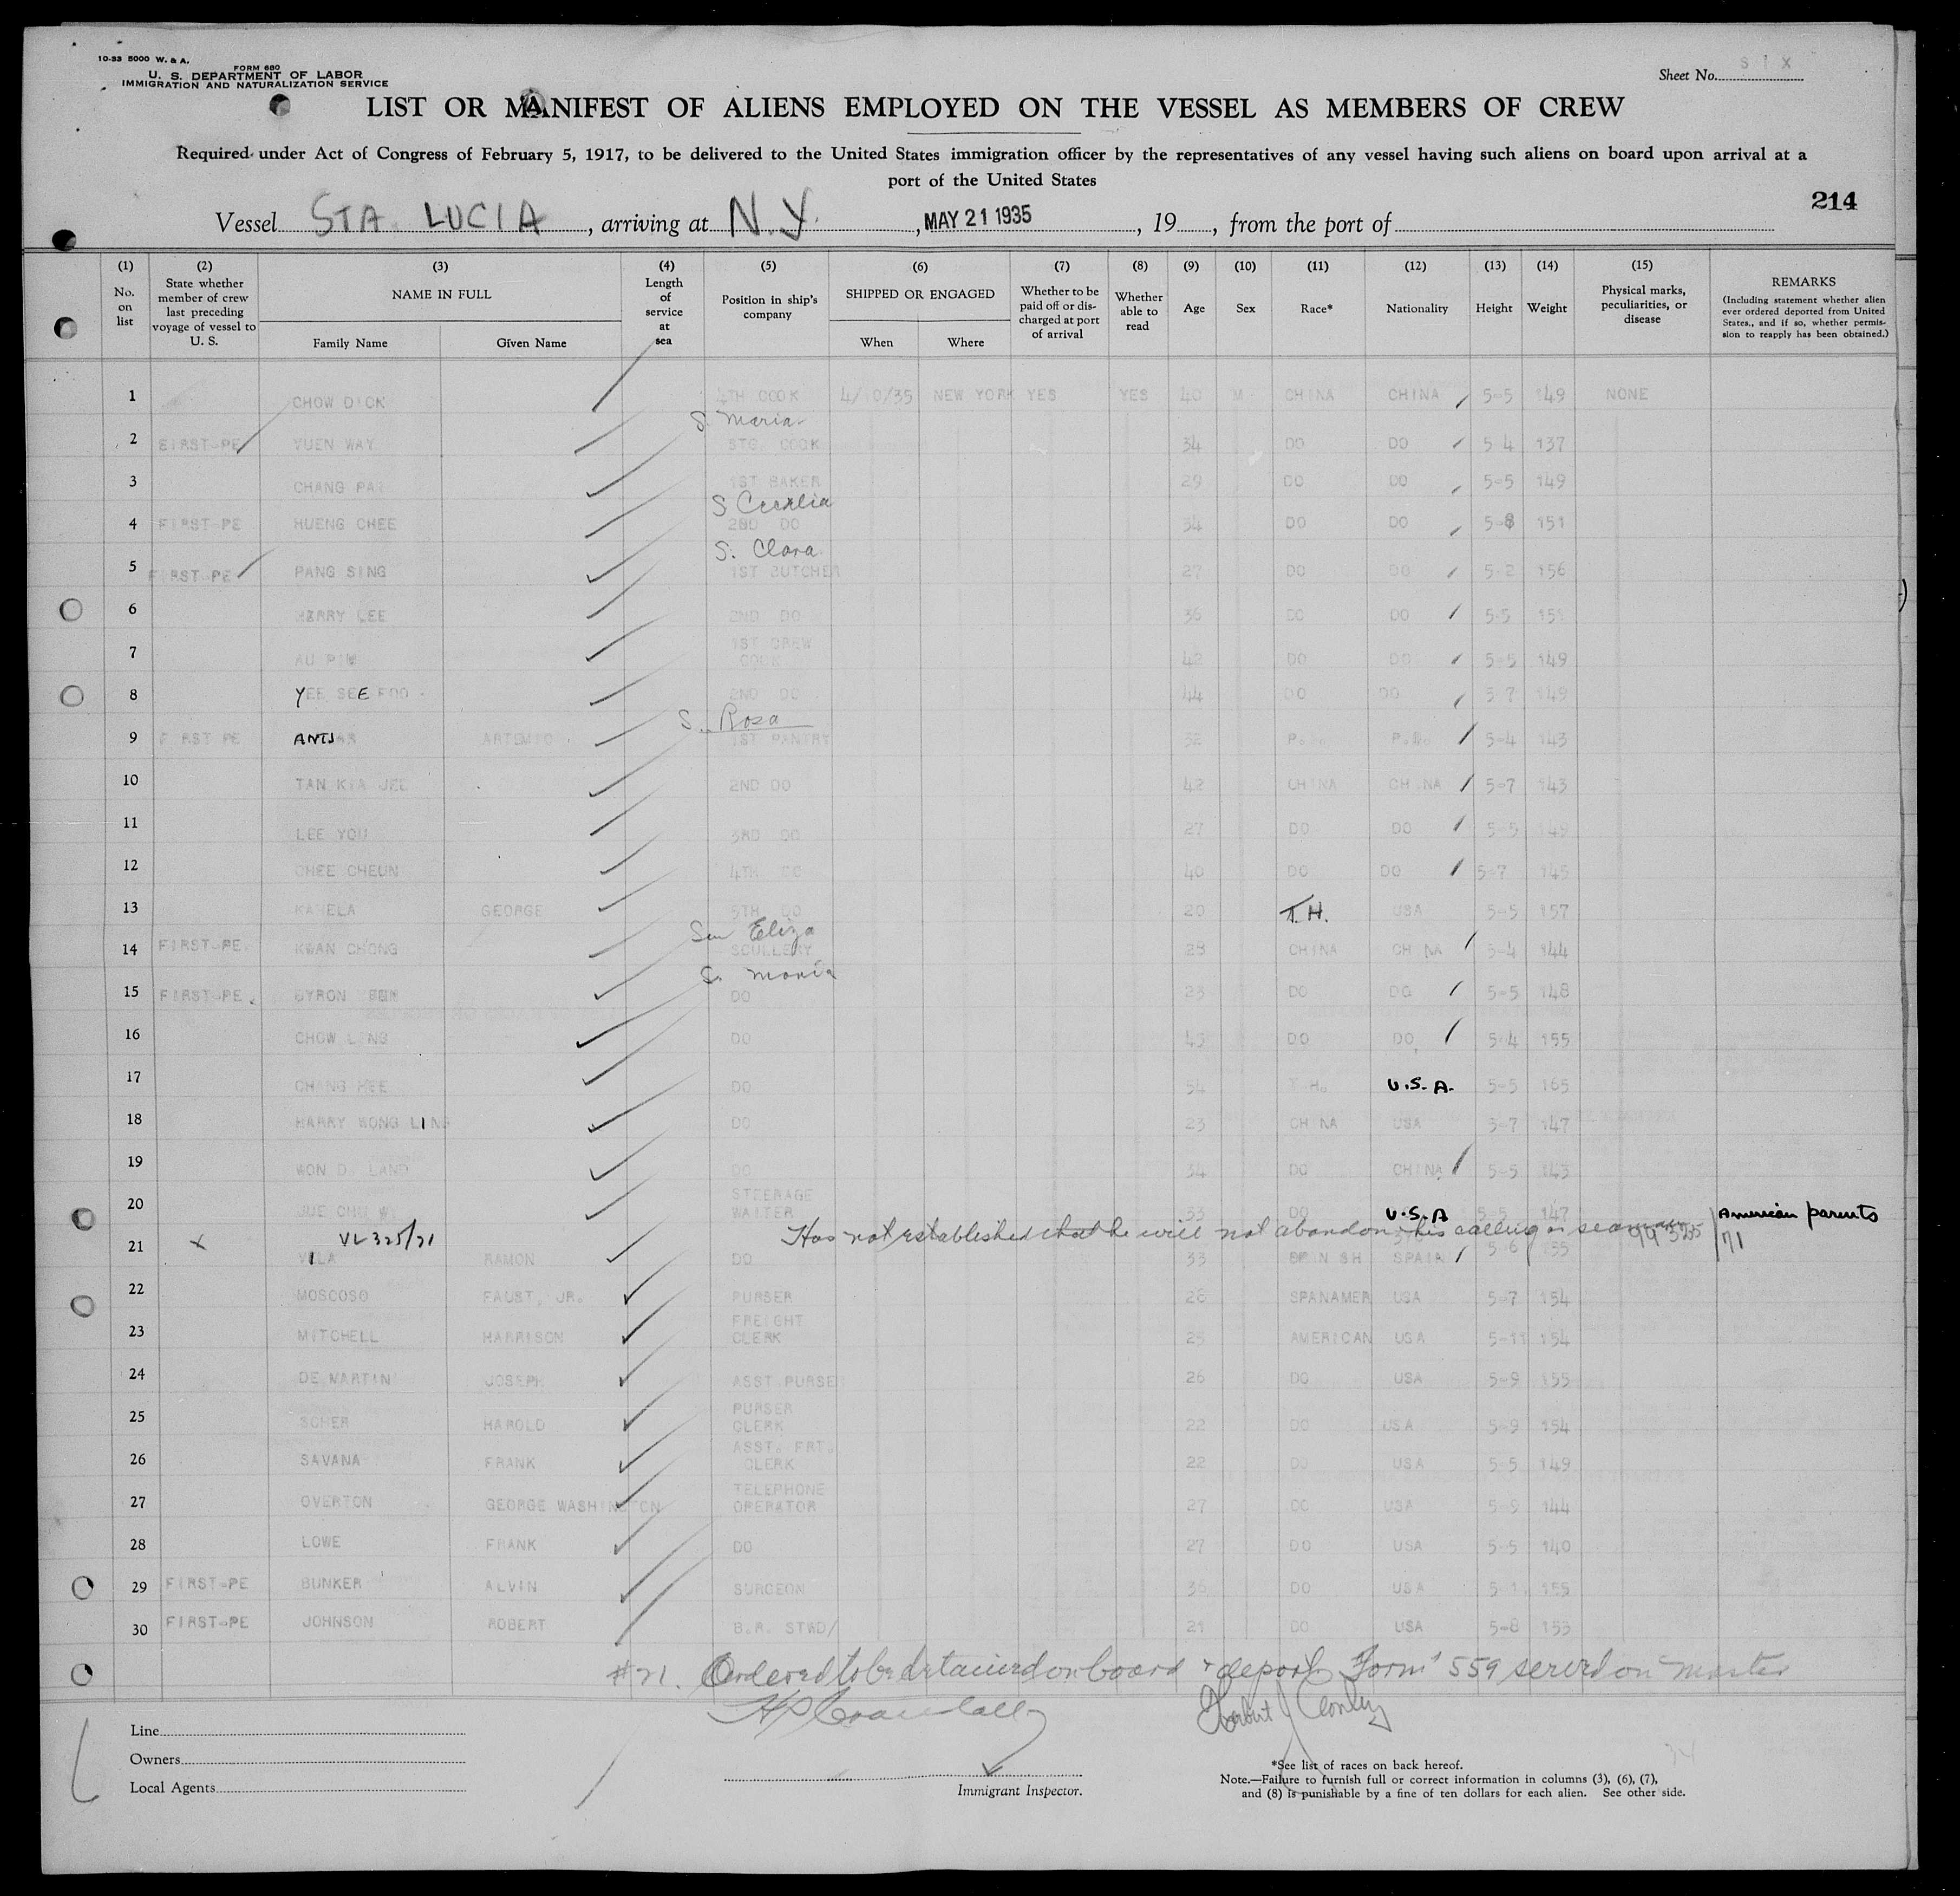 10-33 5000 W. & A.
FORM 680
U. S. DEPARTMENT OF LABOR
IMMIGRATION AND NATURALIZATION SERVICE
Sheet No. SIX
LIST OR MANIFEST OF ALIENS EMPLOYED ON THE VESSEL AS MEMBERS OF CREW
Required under Act of Congress of February 5, 1917, to be delivered to the United States immigration officer by the representatives of any vessel having such aliens on board upon arrival at a
port of the United States
214
Vessel STA. LUCIA, arriving at N.Y., MAY 21 1935, 19, from the port of
(1) No. on list
(2) State whether member of crew last preceding voyage of vessel to U. S.
(3) NAME IN FULL Family Name Given Name
(4) Length of service at sea
(5) Position in ship's company
(6) SHIPPED OR ENGAGED When Where
(7) Whether to be paid off or discharged at port of arrival
(8) Whether able to read
(9) Age
(10) Sex
(11) Race*
(12) Nationality
(13) Height
(14) Weight
(15) Physical marks, peculiarities, or disease
REMARKS (Including statement whether alien ever ordered deported from United States, and if so, whether permission to reapply has been obtained.)
1 CHOW DICK 4TH COOK NEW YORK YES YES 40 M CHINA CHINA 5-5 149 NONE
S. Maria
2 FIRST-PE YUEN WAY STG. COOK 34 DO DO 5 4 137
3 CHANG 1ST BAKER 29 DO DO 5-5 149
S Cecelia
4 FIRST-PE HUENG CHEE 2ND DO 34 DO DO 5-8 151
S. Clara
5 FIRST-PE PANG SING 1ST BUTCHER 27 DO DO 5-2 156
6 HARRY LEE 2ND DO 36 DO DO 5-5 151
7 AU 1ST CREW COOK 42 DO DO 5-5 149
8 YEE SEE FOO 2ND DO 44 DO DO 5 7 149
S. Rosa
9 FIRST PE ARTEMIO 1ST PANTRY 32 5-4 143
10 TAN KIA JEE 2ND DO 42 CHINA CHINA 5-7 143
11 LEE YOU 3RD DO 27 DO DO 5-5 149
12 CHEE CHEUN 4TH DO 40 DO DO 5-7 145
13 GEORGE 5TH DO 20 T.H. USA 5-5 157
Eliza
14 FIRST-PE. KWAN CHONG SCULLERY 28 CHINA CHINA 5-4 144
S. Maria
15 FIRST-PE. BYRON DO 23 DO DO 5-5 148
16 CHOW LING DO 45 DO DO 5-4 155
17 CHANG HEE DO 54 T H. U.S.A. 5-5 165
18 HARRY WONG LING DO 23 CHINA USA 5-7 147
19 DO 34 DO CHINA 5-5 143
20 STEERAGE WAITER 33 DO U.S.A 5-5 147 American parents
Has not established that he will not abandon his calling as seaman
21 x VL 325/21 VILA RAMON DO 33 SPAIN 5-6 155
22 MOSCOSO FAUST, JR. PURSER 26 SPANAMER USA 5-7 154
23 MITCHELL HARRISON FREIGHT CLERK 25 AMERICAN USA 5-11 154
24 DE MARTIN JOSEPH ASST PURSE 26 DO USA 5-9 155
25 SCHER HAROLD PURSER CLERK 22 DO USA 5-9 154
26 SAVANA FRANK ASST. FRT. CLERK 22 DO USA 5-5 149
27 OVERTON GEORGE WASHINGTON TELEPHONE OPERATOR 27 DO USA 5-9 144
28 LOWE FRANK DO 27 DO USA 5-5 140
29 FIRST-PE BUNKER ALVIN SURGEON 36 DO USA 155
30 FIRST-PE JOHNSON ROBERT B.R. STWD/ 21 DO USA 5-8 153
#21. Ordered to be detained on board & deport. Form 559 served on master
HP Crandall
Line
Owners
Local Agents
Immigrant Inspector.
*See list of races on back hereof.
Note.—Failure to furnish full or correct information in columns (3), (6), (7),
and (8) is punishable by a fine of ten dollars for each alien. See other side.